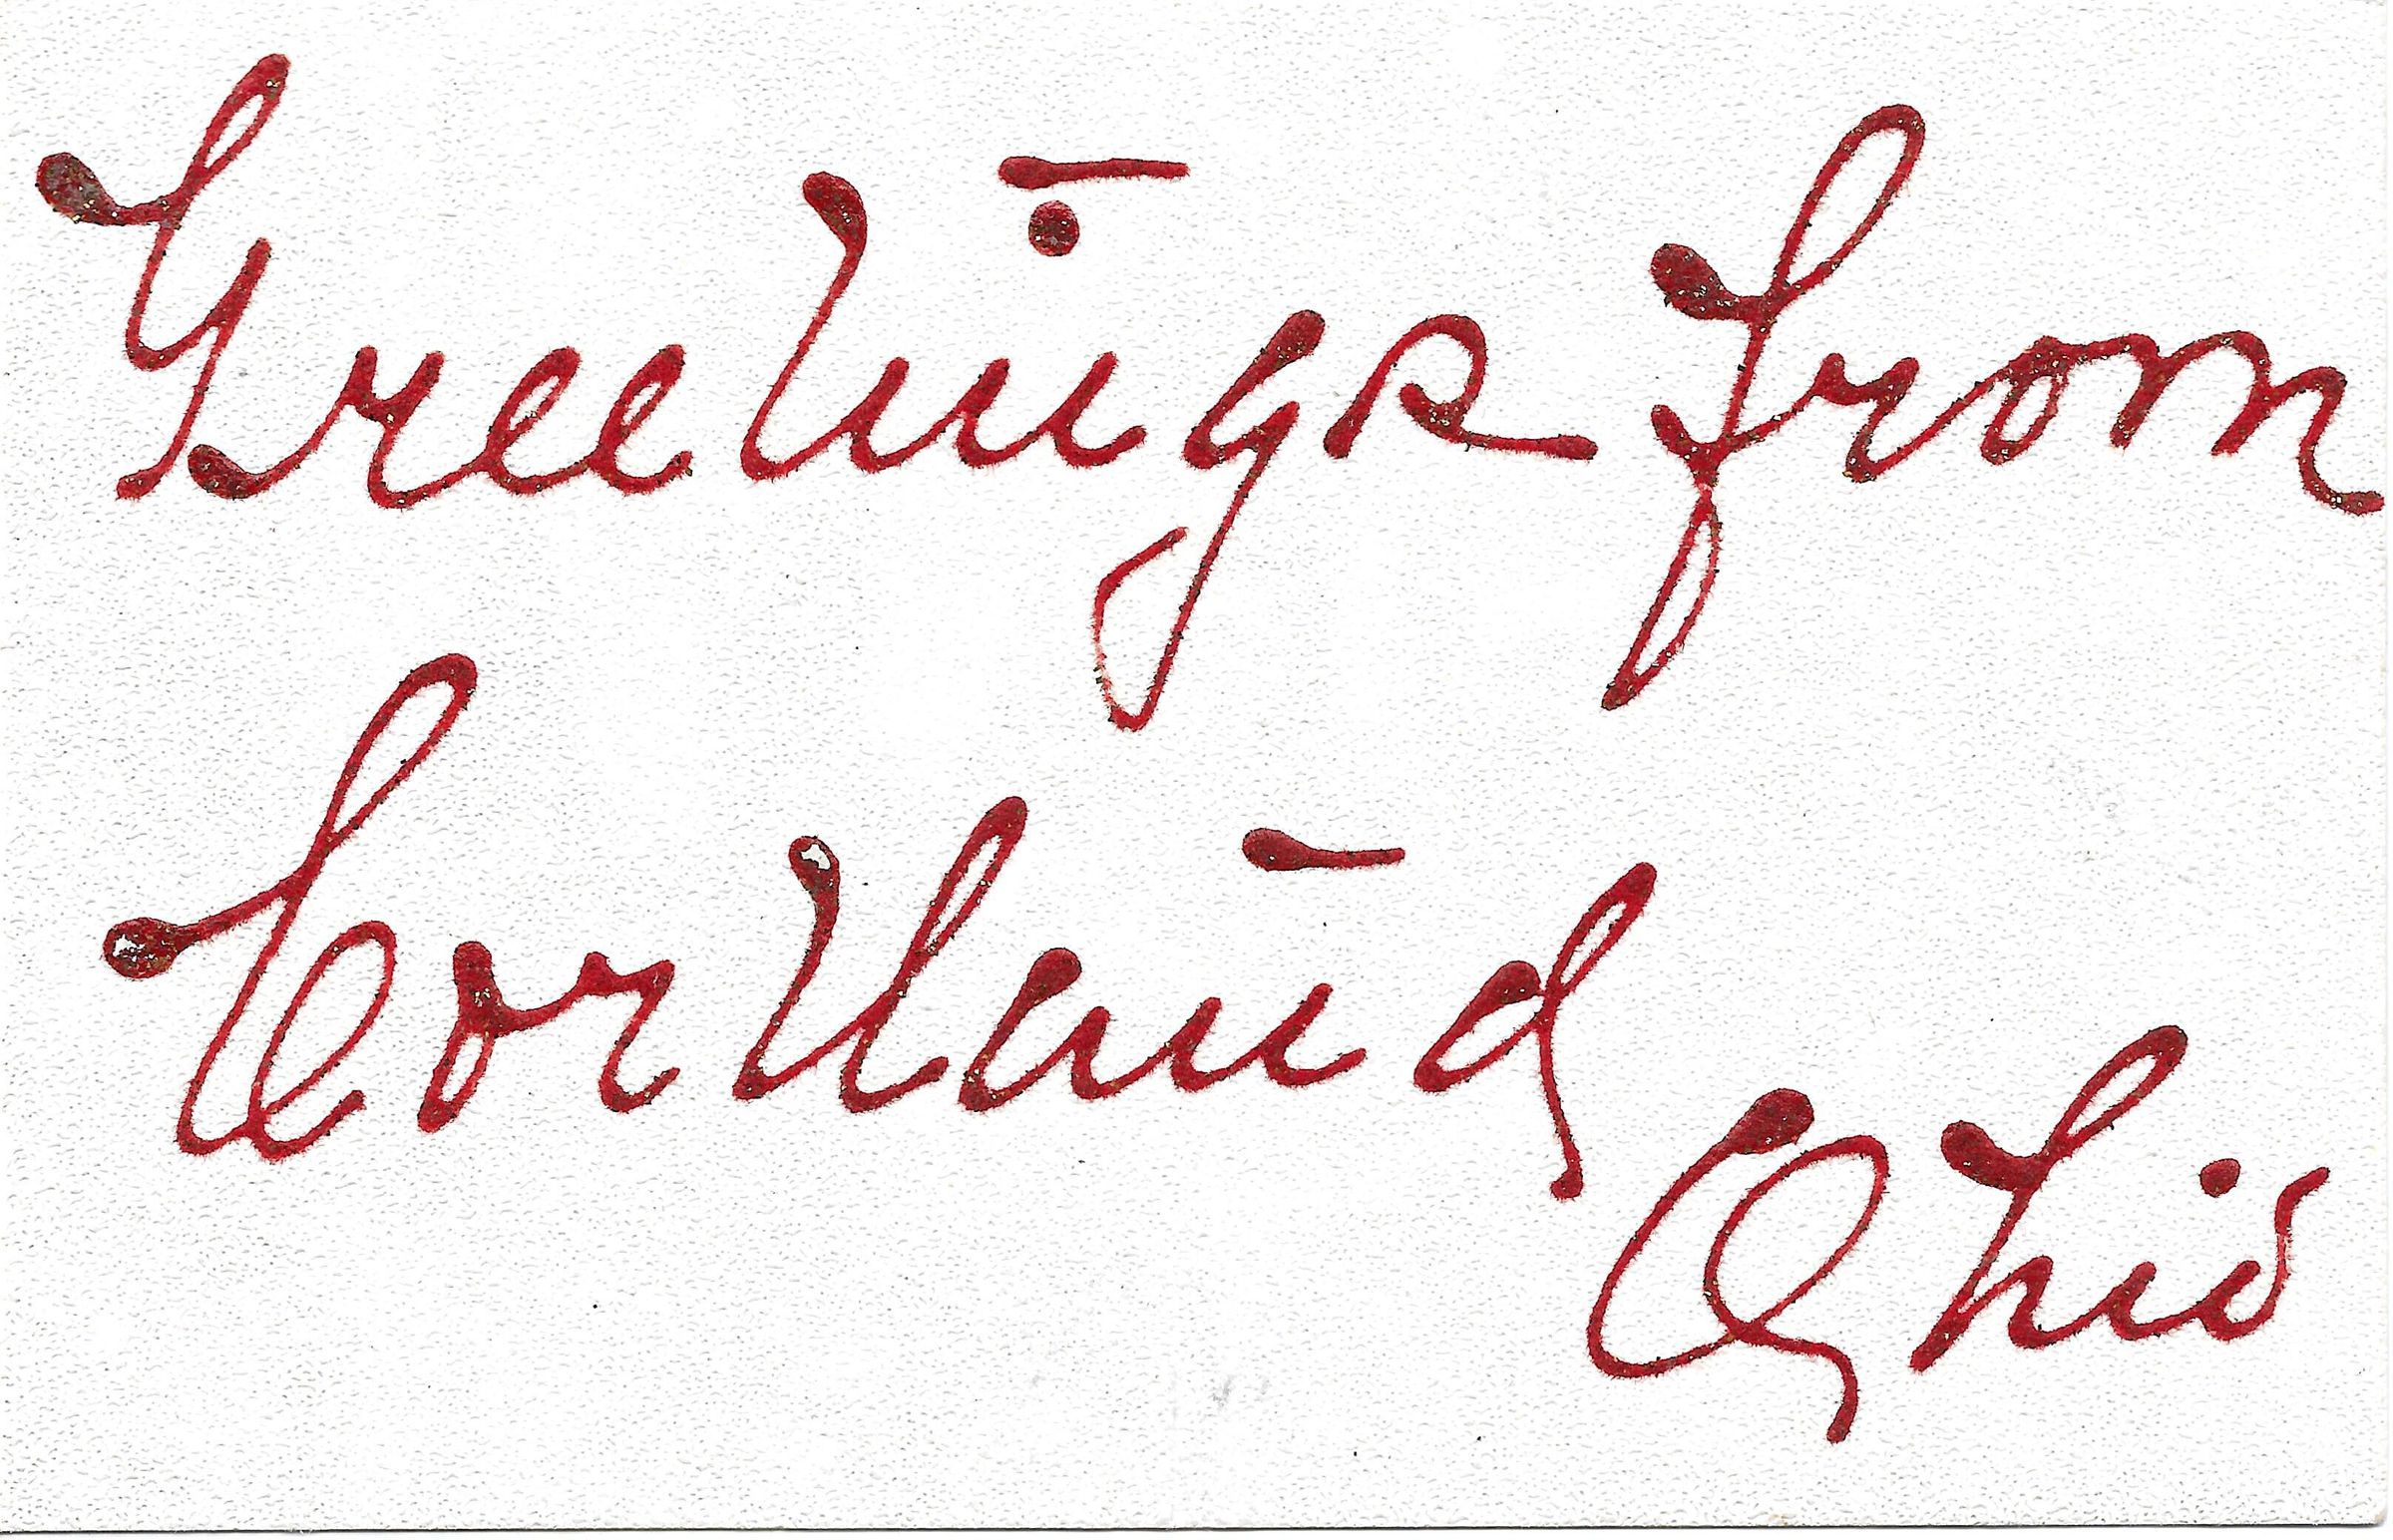 Greetings from
Cortland
Ohio